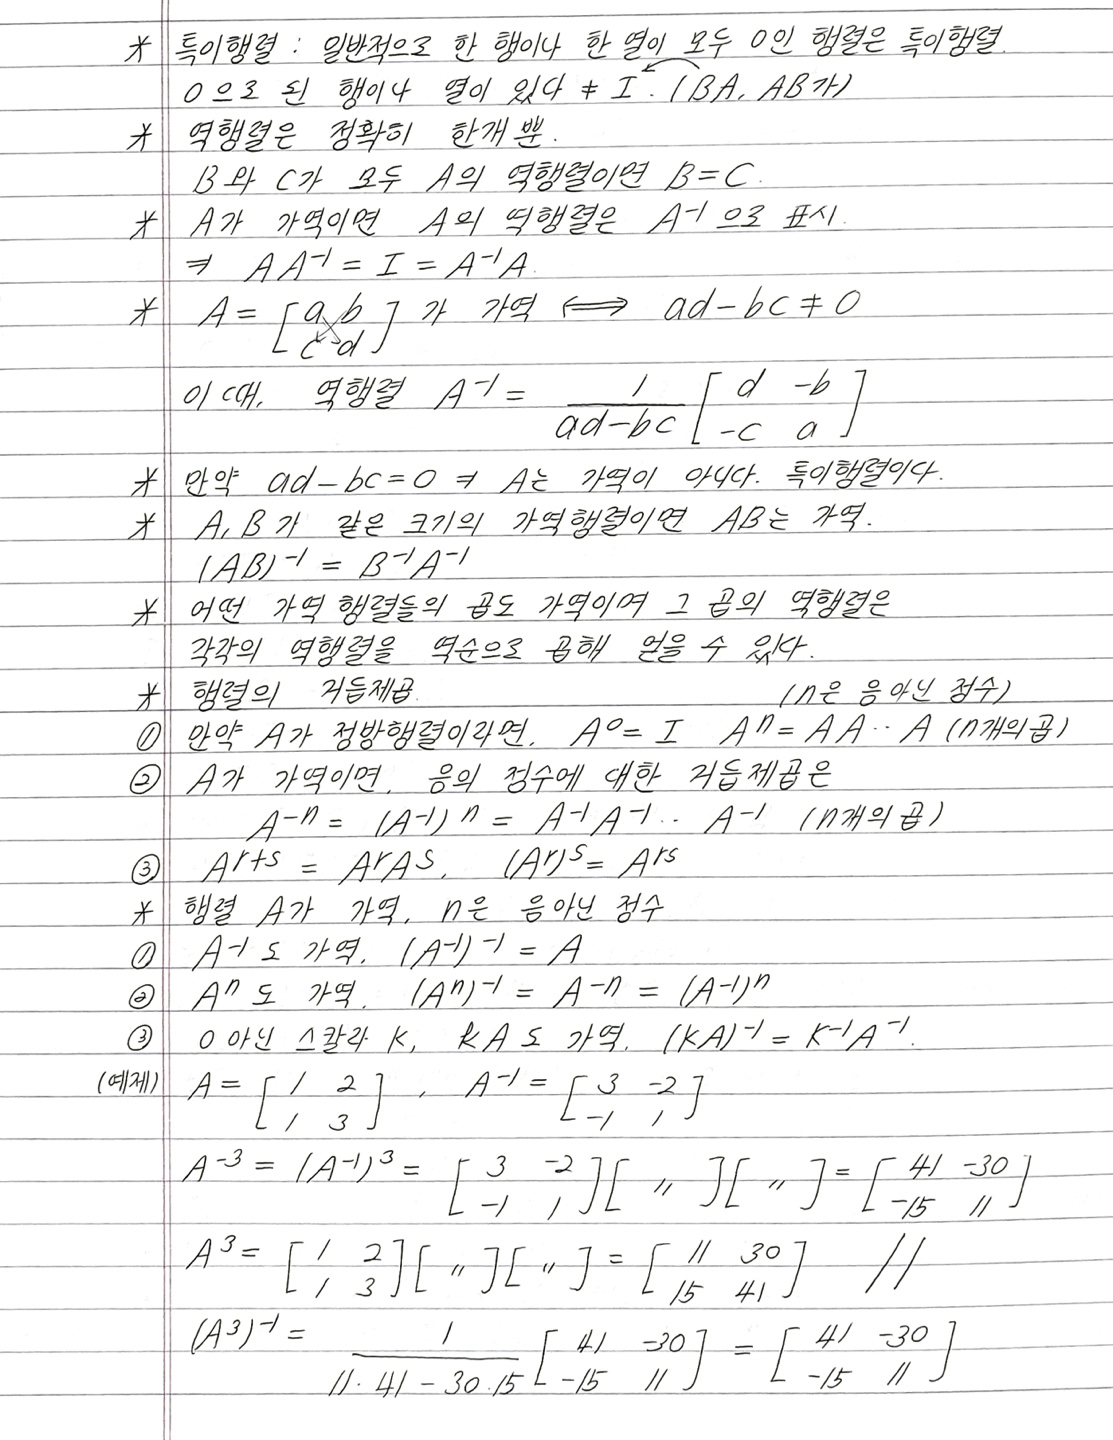 * 특이행렬 : 일반적으로 한 행이나 한 열이 모두 0인 행렬은 특이행렬.
0으로 된 행이나 열이 있다 ≠ I. (BA, AB가)
* 역행렬은 정확히 한개뿐.
B와 C가 모두 A의 역행렬이면 B=C.
* A가 가역이면 A의 역행렬은 A⁻¹으로 표시.
⇒ AA⁻¹ = I = A⁻¹A.
* A = [a b; c d]가 가역 ⟺ ad-bc ≠ 0
이때, 역행렬 A⁻¹ = 1/(ad-bc) [d -b; -c a]
* 만약 ad-bc=0 ⇒ A는 가역이 아니다. 특이행렬이다.
* A, B가 같은 크기의 가역행렬이면 AB는 가역.
(AB)⁻¹ = B⁻¹A⁻¹
* 어떤 가역 행렬들의 곱도 가역이며 그 곱의 역행렬은
각각의 역행렬을 역순으로 곱해 얻을 수 있다.
* 행렬의 거듭제곱. (n은 음아닌 정수)
① 만약 A가 정방행렬이라면, A⁰ = I Aⁿ = AA‥A (n개의 곱)
② A가 가역이면, 음의 정수에 대한 거듭제곱은
A⁻ⁿ = (A⁻¹)ⁿ = A⁻¹A⁻¹‥ A⁻¹ (n개의 곱)
③ Aʳ⁺ˢ = AʳAˢ, (Aʳ)ˢ = Aʳˢ
* 행렬 A가 가역, n은 음아닌 정수
① A⁻¹도 가역, (A⁻¹)⁻¹ = A
② Aⁿ도 가역, (Aⁿ)⁻¹ = A⁻ⁿ = (A⁻¹)ⁿ
③ 0아닌 스칼라 K, kA도 가역, (KA)⁻¹ = K⁻¹A⁻¹.
(예제) A = [1 2; 1 3], A⁻¹ = [3 -2; -1 1]
A⁻³ = (A⁻¹)³ = [3 -2; -1 1][〃][〃] = [41 -30; -15 11]
A³ = [1 2; 1 3][〃][〃] = [11 30; 15 41] //
(A³)⁻¹ = 1/(11·41-30·15) [41 -30; -15 11] = [41 -30; -15 11]